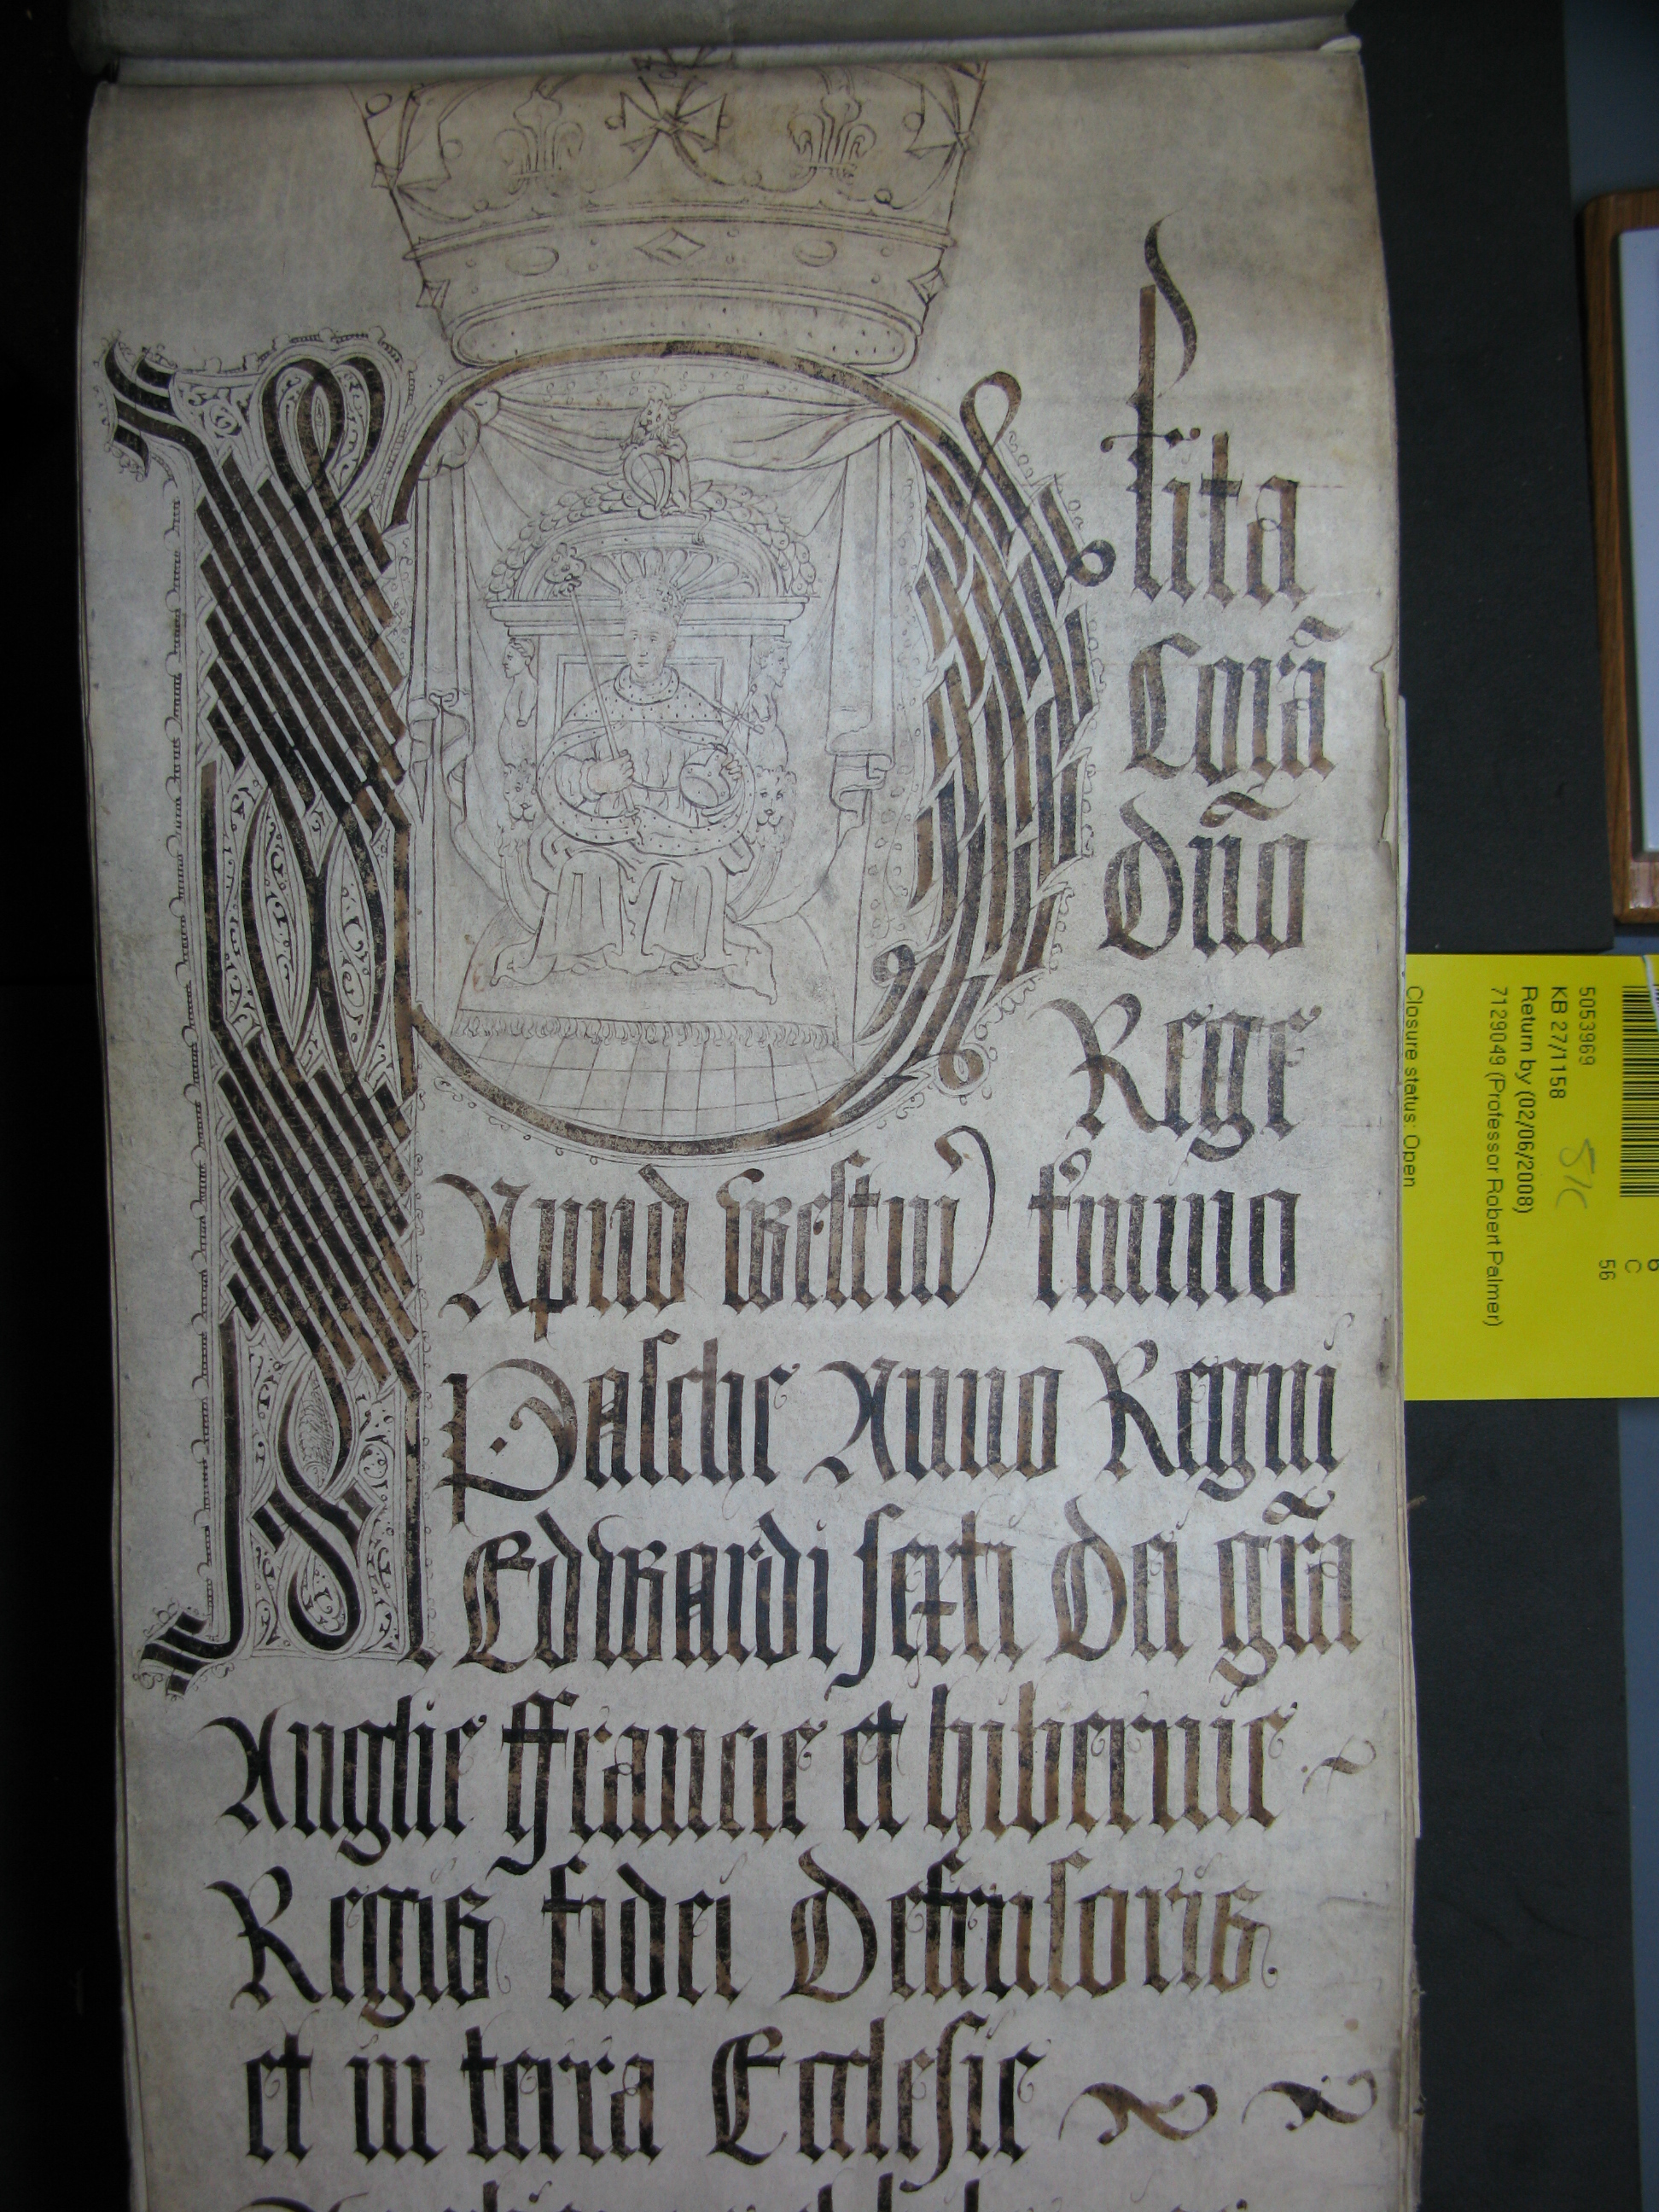 Plita
Corā
dño
Rege
Apud Westm̃ t'mino
Pasche Anno Regni
Edwardi sexti Dei grã
Anglie ffrancie et hibernie
Regis fidei Defensoris.
et in terra Ecclesie
5053969
KB 27/1158
Return by (02/06/2008)
7129049 (Professor Robert Palmer)
Closure status: Open
S/C
C
56